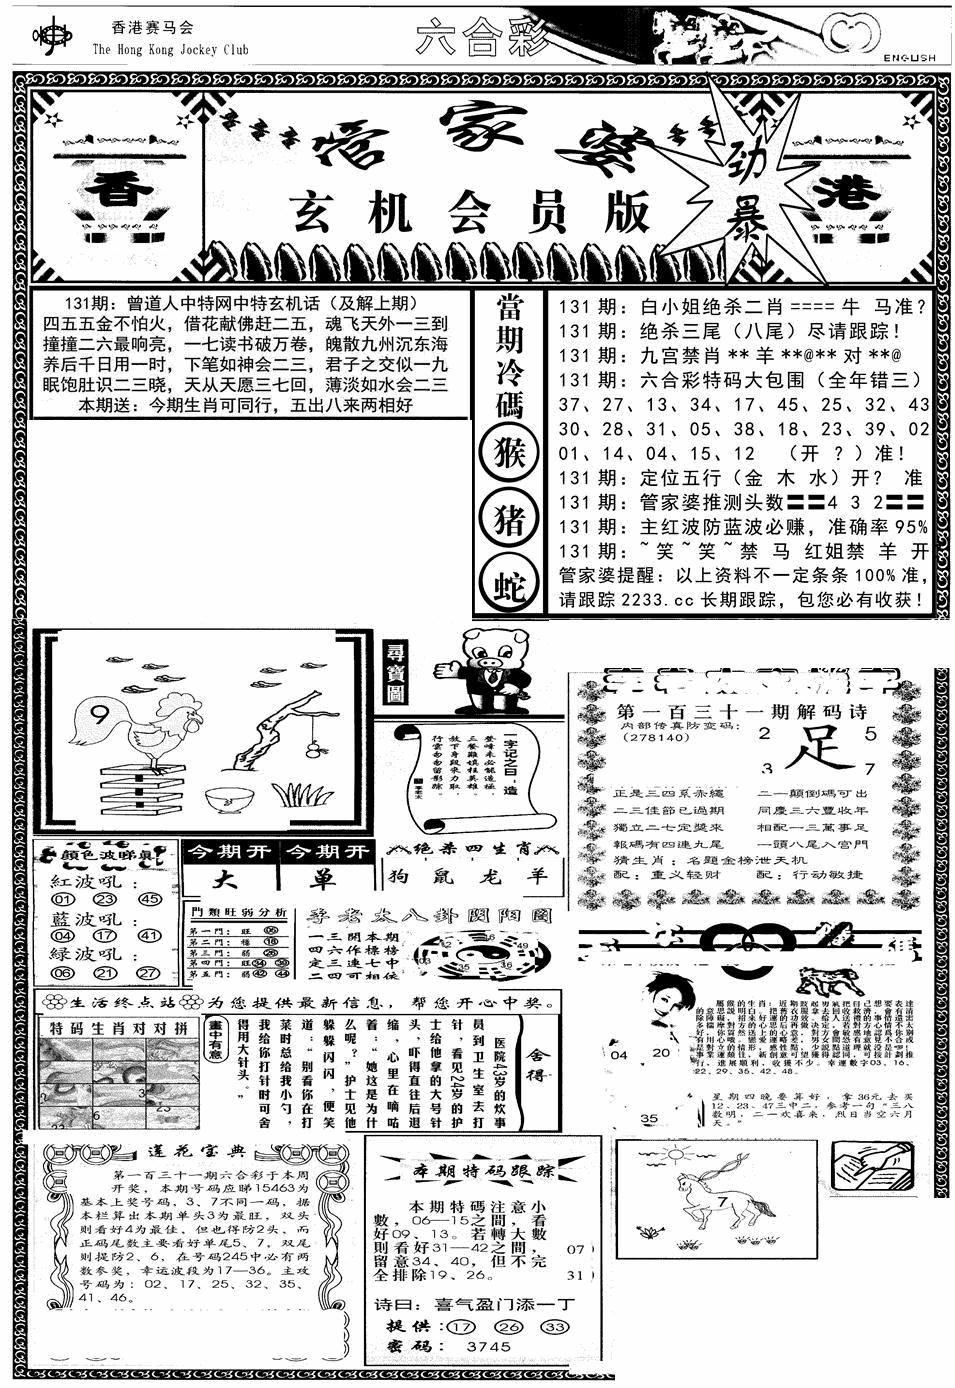 香港赛马会
The Hong Kong Jockey Club
六合彩
ENGLISH
香
管家婆
玄机会员版
劲暴
港
131期：曾道人中特网中特玄机话（及解上期）
四五五金不怕火，借花献佛赶二五，魂飞天外一三到
撞撞二六最响亮，一七读书破万卷，魄散九州沉东海
养后千日用一时，下笔如神会二三，君子之交似一九
眠饱肚识二三晓，天从天愿三七回，薄淡如水会二三
本期送：今期生肖可同行，五出八来两相好
當期冷碼
猴
猪
蛇
131期：白小姐绝杀二肖====牛 马准？
131期：绝杀三尾（八尾）尽请跟踪！
131期：九宫禁肖**羊**@**对**@
131期：六合彩特码大包围（全年错三）
37、27、13、34、17、45、25、32、43
30、28、31、05、38、18、23、39、02
01、14、04、15、12 （开 ？）准！
131期：定位五行（金 木 水）开？ 准
131期：管家婆推测头数〓〓4 3 2〓〓
131期：主红波防蓝波必赚，准确率95%
131期：~笑~笑~禁 马 红姐禁 羊 开
管家婆提醒：以上资料不一定条条100%准，
请跟踪2233.cc长期跟踪，包您必有收获！
9
尋寶圖
一字记之曰：造
登峰未必能造極，
三餐難填柱英雄。
放下身段来力取，
行雲勿勿留影踪。
第一百三十一期解码诗
内部传真防变码：
（278140）
2 5
足
3 7
正是三四系赤繩 二一顛倒碼可出
二三佳節已過期 同慶三六豐收年
獨立二七定獎來 相配一三萬事足
報碼有四連九尾 一頭八尾入宫門
猜生肖：名题金榜泄天机
配：重义轻财 配：行动敏捷
顔色波睇真
紅波吼：
01 23 45
藍波吼：
04 17 41
绿波吼：
06 21 27
今期开 今期开
大 单
绝杀四生肖
狗 鼠 龙 羊
門類旺弱分析
第一門：旺 06
第二門：穩 18
第三門：弱 26
第四門：旺 34 36
第五門：弱 42 44
李老太八卦阴阳图
一三開本期
四六作標榜
定三連七中
二四可相依
生活终点站 为您提供最新信息，帮您开心中奖。
特码生肖对对拼
畫中有意
舍得
医院43岁的炊事
员到卫生室去打
针，看见24岁的护
士给他拿的大号针
头，吓得直往后退
缩，心里在嘀咕
着：“她这是为什
么呢？”护士见他
躲躲闪闪，便笑
道：“别看你在打
菜时总给我小勺，
我给你打针时可舍
得用大针头。”
04 20
35
22、29、35、42、48。
星期四晚要算好，拿36元去买
12、23、47三中二，参考一句“三八
数明，二一欢喜来，烈日当空六月
天。”
莲花宝典
第一百三十一期六合彩于本周
开奖，本期号码应睇15463为
基本上奖号码，3、7不同一码，据
本栏算出本期单头3为最旺，双头
则看好4为最佳，但也得防2头，而
正码尾数主要看好单尾5、7，双尾
则提防2、6，在号码245中必有两
数参奖，幸运波段为17—36。主攻
号码为：02、17、25、32、35、
41、46。
本期特码跟踪
本期特碼注意小
數，06—15之間，看
好09、13。若轉大數
則看好31—42之間，
留意34、40，但不完
全排除19、26。
07
31
诗曰：喜气盈门添一丁
提供：17 26 33
密码：3745
7